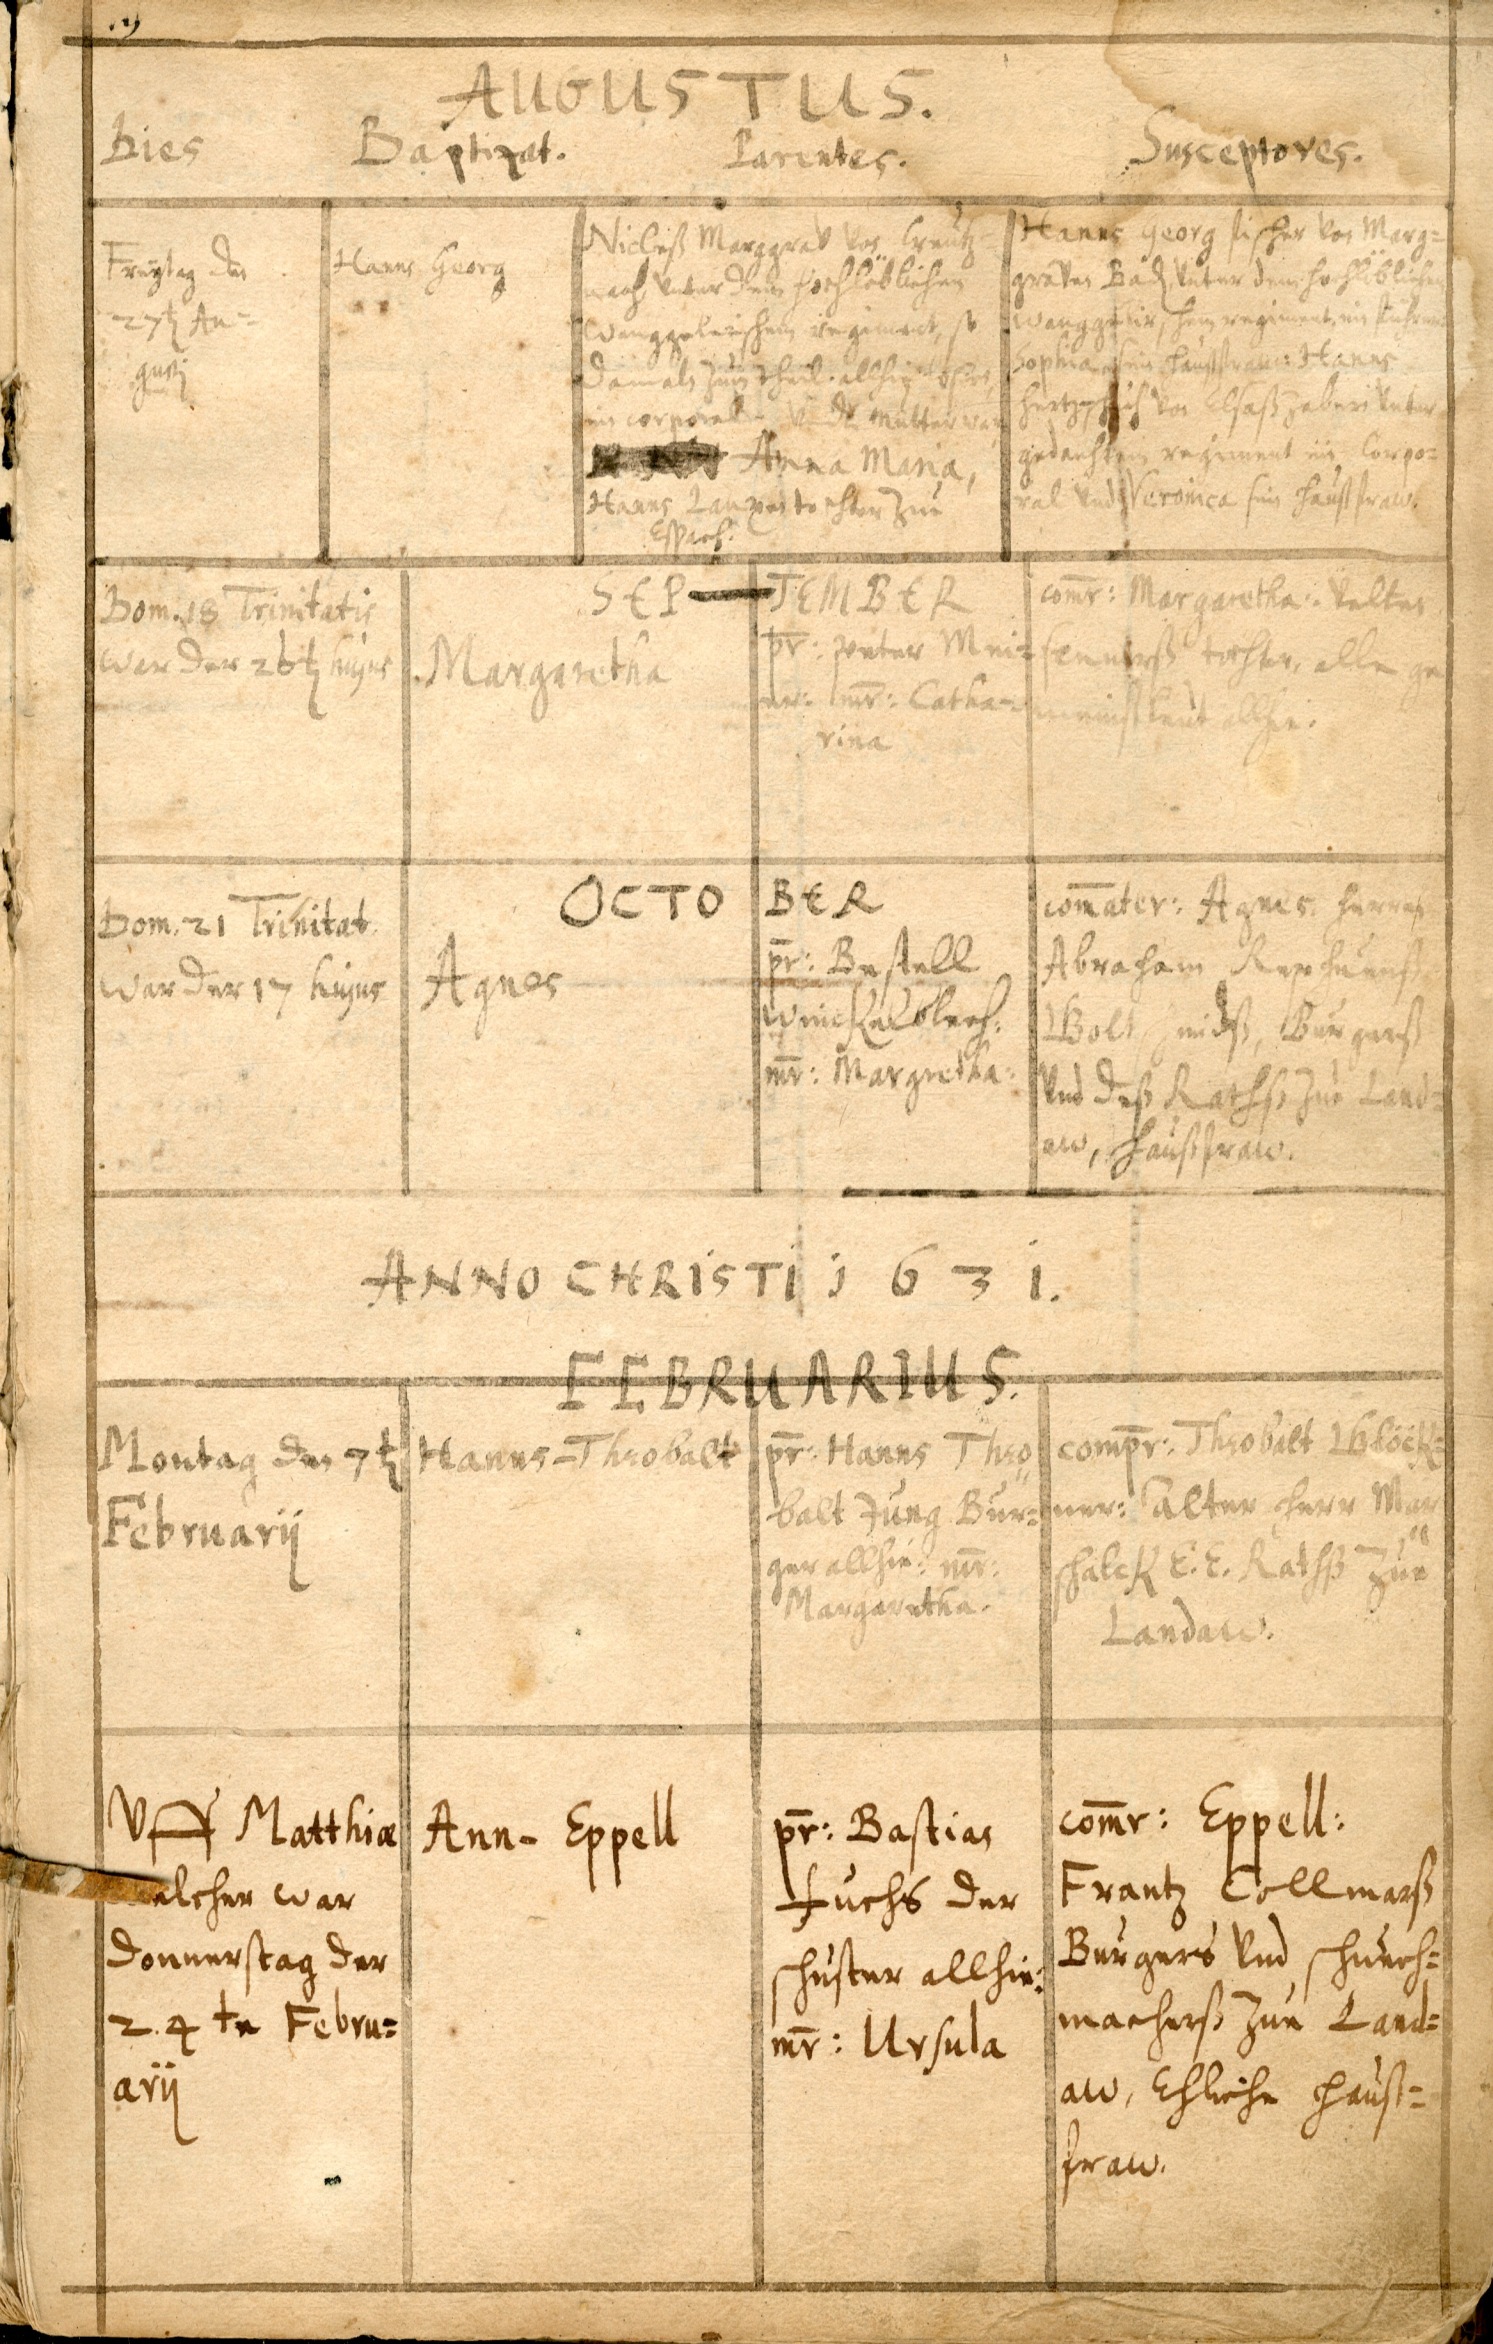 AUGUSTUS.
Dies Baptizat. Parentes. Susceptores.
Freytag den
27t Au=
gustj
Hanns Georg
Marggrav von Creutz=
nach unter dem hochlöblichen
regiment, so
damals zum theil allhie
ein corporal die mutter war
Anna Maria,
Hanns tochter zue
Hanns Georg fischer von Marg=
graven Bad unter dem hochlöblichen
regiment, ein
Sophia sein haussfraw: Hanns
von Elsaß Zabern unter
gedachtem regiment ein Corpo=
ral und Veronica sein haußfraw.
SEP-TEMBER
Dom. 18 Trinitatis
war der 26t hujus
Margaretha
pr: peter Mei=
mr: Catha=
rina
comr: Margaretha: Veltes
tochter, alle ge
allhie.
OCTOBER
Dom. 21 Trinitat.
war der 17 hujus
Agnes
pr: Bestell
Winckelblech:
mr: Margretha:
commater: Agnes: herren
Abraham
Burgerß
und deß Rathß zue Land=
aw, haußfraw.
ANNO CHRISTI 1631.
FEBRUARIUS.
Montag den 7t
Februarij
Hanns-Theobalt
pr: Hanns Theo
balt Jung Bur=
ger allhie: mr:
Margaretha.
compr: Theobalt Glöck=
ner: alter herr Mar
schalck E. E. Rathß zue
Landaw.
Uff Matthiæ
welcher war
donnerstag der
24 te Febru=
arij
Ann- Eppell
pr: Bastian
fuchs der
schuster allhie:
mr: Ursula
comr: Eppell:
Frantz Collmarß
Burgers und schuech=
macherß zue Land=
aw, Ehliche hauß=
fraw.